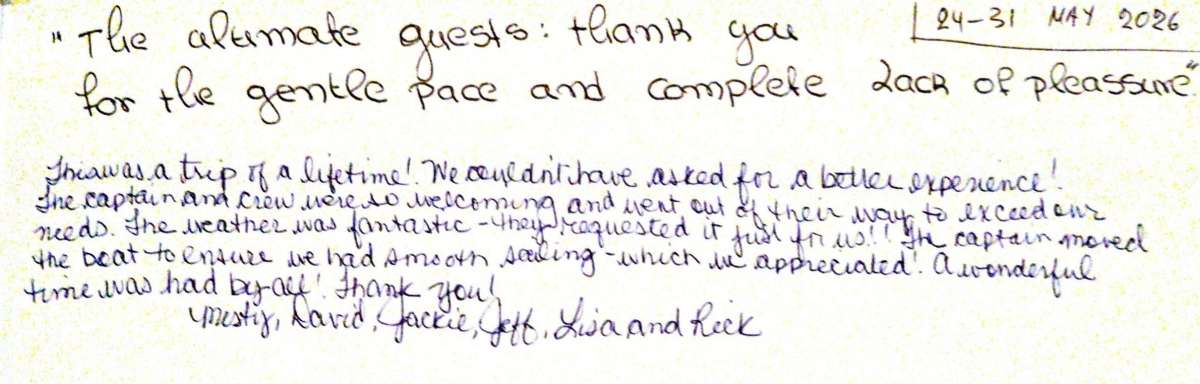 "The altimate guests: thank you
24-31 MAY 2026
for the gentle pace and complete lack of pleassure"
This was a trip of a lifetime! We couldn't have asked for a better experience!
The captain and crew were so welcoming and went out of their way to exceed our
needs. The weather was fantastic - they requested it just for us!! The captain moved
the boat to ensure we had smooth sailing - which we appreciated! A wonderful
time was had by all! Thank you!
Misty, David, Jackie, Jeff, Lisa and Rick